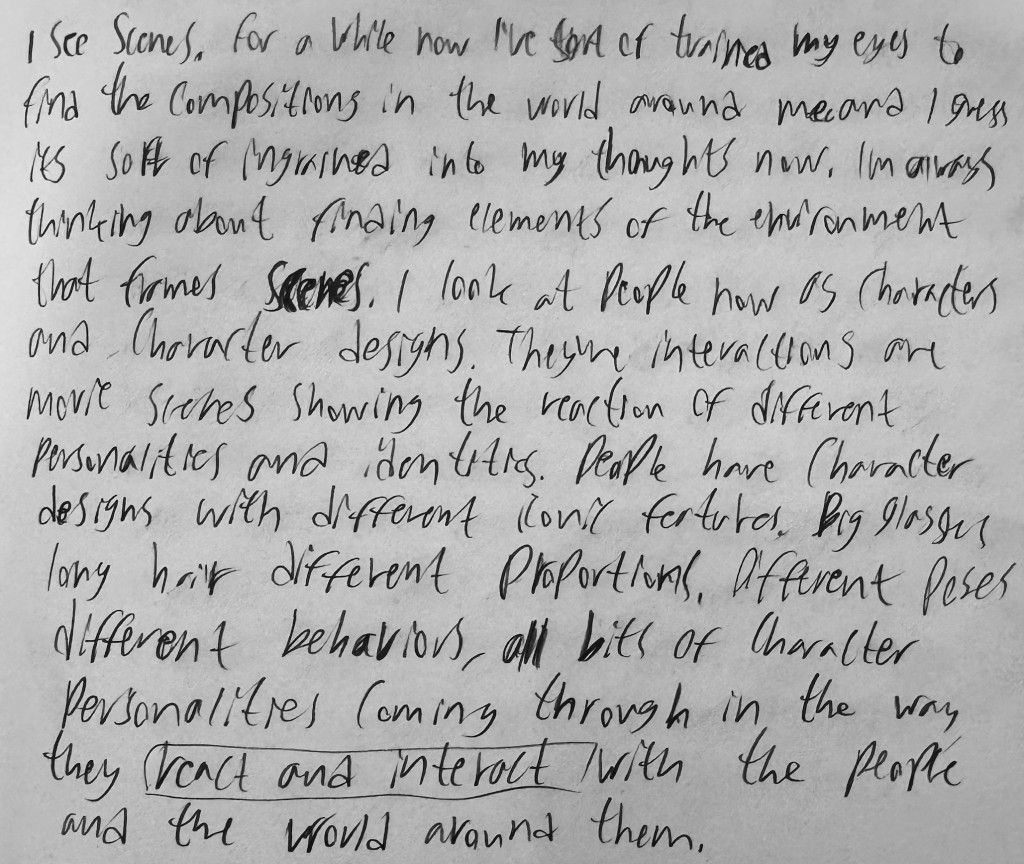 I see Scenes. For a while now I've sort of trained my eyes to
find the compositions in the world around me and I guess
its sort of ingrained into my thoughts now. Im always
thinking about finding elements of the environment
that frames scenes. I look at people now as characters
and character designs. They're interactions are
movie scenes showing the reaction of different
personalities and identities. People have character
designs with different iconic features. Big glasses
long hair different proportions. Different poses
different behaviors, all bits of character
personalities coming through in the way
they react and interact with the people
and the world around them.